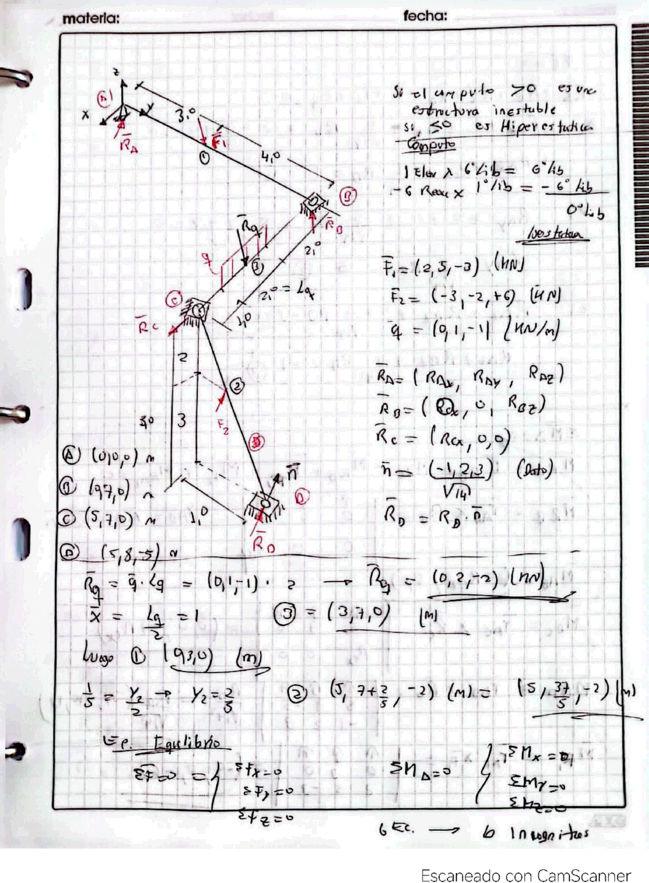 materia:
fecha:
Si el computo >0 es una
estructura inestable
si ≤0 es Hiperestatica
Computo
1 Elem x 6°lib = 6°lib
-6 Reac x 1°lib = -6°lib
0°lib
z
x
y
A
R̄A
3,0
F̄1
1
4,0
B
R̄B
R̄q
q
3
2,0
2,0 = Lq
1,0
C
R̄c
2
3
F2
2
n̄
D
1,0
R̄D
F̄1 = (2, 5, -3) (KN)
F̄2 = (-3, -2, +6) (KN)
q̄ = (0, 1, -1) (KN/m)
R̄A = (RAx, RAy, RAz)
R̄B = (RBx, 0, RBz)
R̄c = (Rcx, 0, 0)
n̄ = (-1, 2, 3) (Dato)
√14
R̄D = RD · n̄
A (0,0,0) m
B (0,7,0) m
C (5,7,0) m
D (5,8,-5) m
R̄q = q̄ · Lq = (0,1,-1) · 2 → R̄q = (0, 2, -2) (KN)
x̄ = Lq/2 = 1 3 = (3,7,0) (m)
Luego 1 (0,3,0) (m)
1/5 = Y2/2 → Y2 = 2/5 2 (5, 7+2/5, -2) (m) = (5, 37/5, -2) (m)
Ec. Equilibrio
ΣF̄=0 = { ΣFx=0
ΣFy=0
ΣFz=0
ΣMA=0 { ΣMx=0
ΣMy=0
ΣMz=0
6 Ec. → 6 Incognitas
Escaneado con CamScanner